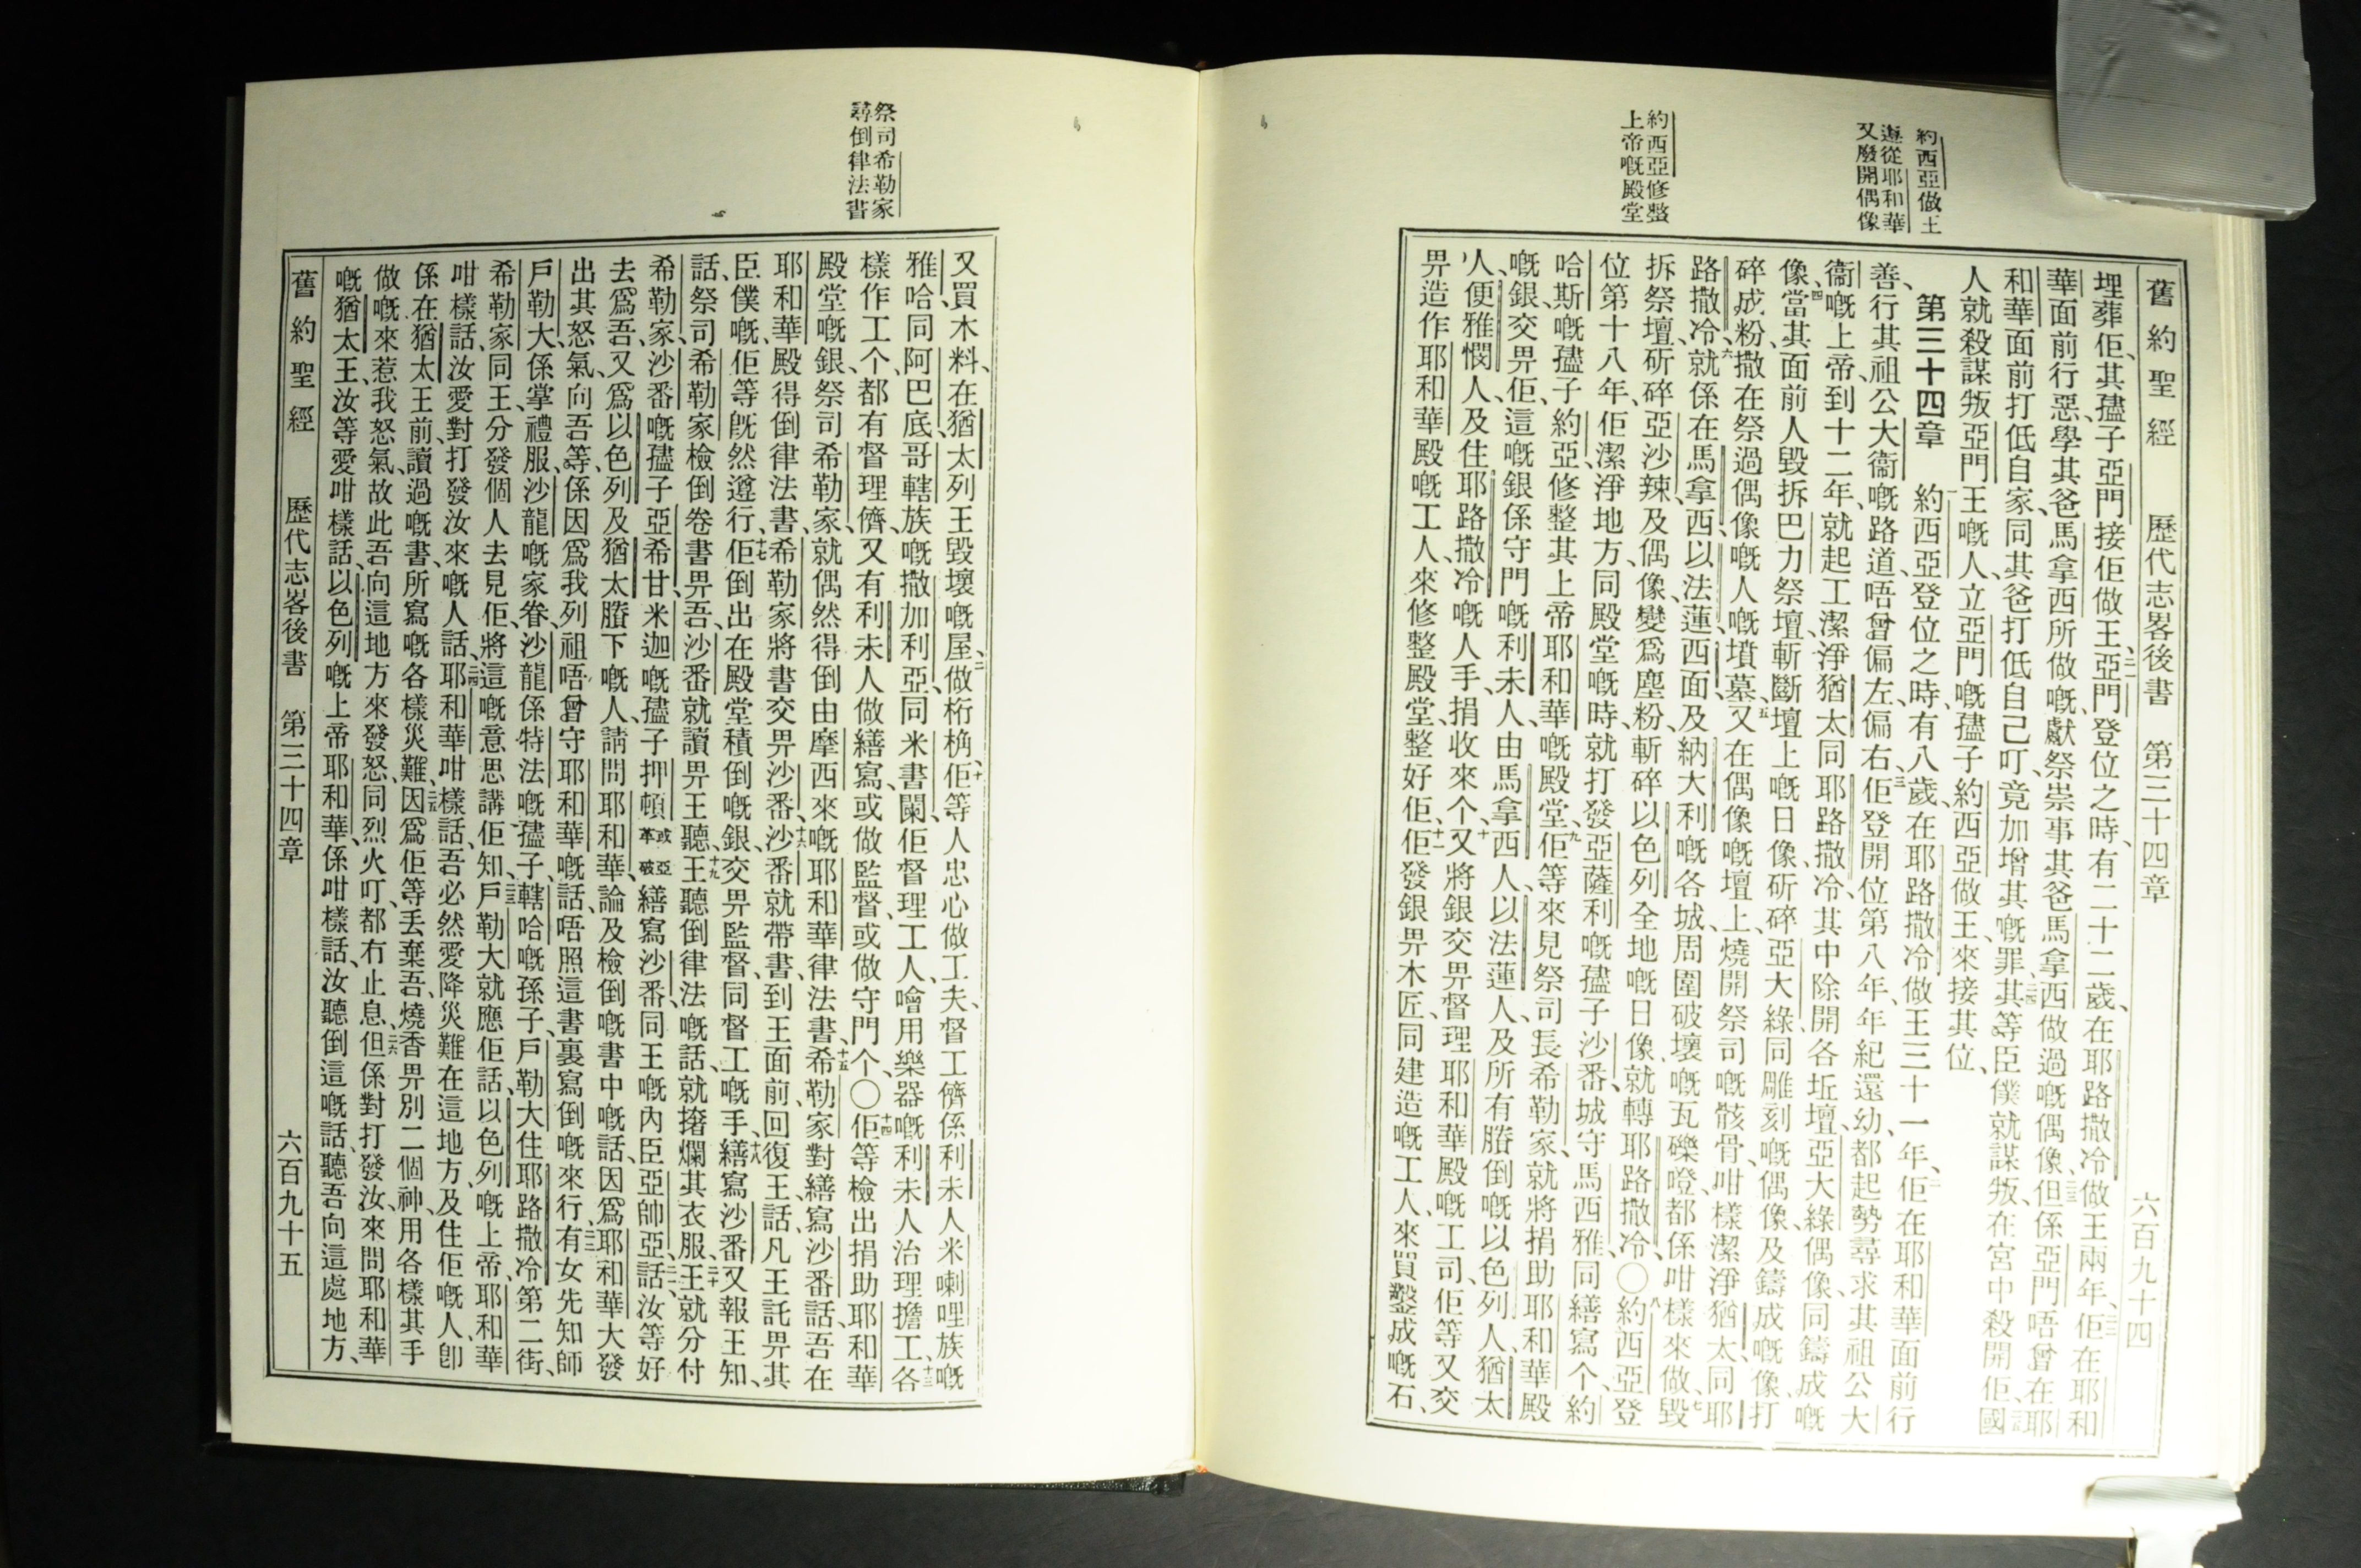 舊約聖經　歷代志畧後書　第三十四章　六百九十四
約西亞做王
遵從耶和華
又廢開偶像
約西亞修整
上帝嘅殿堂
埋葬佢、其孻子亞門接佢做王、二一亞門登位之時、有二十二歲、在耶路撒冷做王兩年、二二佢在耶和
華面前行惡、學其爸馬拿西所做嘅、獻祭崇事其爸馬拿西做過嘅偶像、二三但係亞門唔曾在耶
和華面前打低自家、同其爸打低自己叮、竟加增其嘅罪、二四其等臣僕就謀叛、在宮中殺開佢、二五國
人就殺謀叛亞門王嘅人、立亞門嘅孻子約西亞做王、來接其位、
第三十四章　一約西亞登位之時、有八歲、在耶路撒冷做王三十一年、二佢在耶和華面前行
善、行其祖公大衞嘅路道、唔曾偏左、偏右、三佢登開位第八年、年紀還幼、都起勢尋求其祖公大
衞嘅上帝、到十二年、就起工潔淨猶太同耶路撒冷、其中除開各坵壇、亞大綠偶像、同鑄成嘅
像、四當其面前人毀拆巴力祭壇、斬斷壇上嘅日像、斫碎亞大綠、同雕刻嘅偶像、及鑄成嘅像、打
碎成粉、撒在祭過偶像嘅人嘅墳墓、五又在偶像嘅壇上、燒開祭司嘅骸骨、咁樣潔淨猶太、同耶
路撒冷、六就係在馬拿西、以法蓮、西面、及納大利嘅各城、周圍破壞嘅瓦礫磴、都係咁樣來做、七毀
拆祭壇、斫碎亞沙辣、及偶像、變爲塵粉、斬碎以色列全地嘅日像、就轉耶路撒冷、〇八約西亞登
位第十八年、佢潔淨地方、同殿堂嘅時、就打發亞薩利嘅孻子沙番、城守馬西雅、同繕寫个、約
哈斯嘅孻子約亞、修整其上帝耶和華嘅殿堂、九佢等來見祭司長希勒家、就將捐助耶和華殿
嘅銀、交畀佢、這嘅銀係守門嘅利未人、由馬拿西人、以法蓮人、及所有賸倒嘅以色列人、猶太
人、便雅憫人、及住耶路撒冷嘅人手、捐收來个、十又將銀交畀督理耶和華殿嘅工司、佢等又交
畀造作耶和華殿嘅工人、來修整殿堂、整好佢、十一佢發銀畀木匠、同建造嘅工人、來買鑿成嘅石、
祭司希勒家
尋倒律法書
又買木料、在猶太列王毀壞嘅屋、十二做桁桷、佢等人忠心做工夫、督工儕係利未人米喇哩族嘅
雅哈同阿巴底、哥轄族嘅撒加利亞、同米書闌、佢督理工人、噲用樂器嘅利未人治理擔工、十三各
樣作工个、都有督理儕、又有利未人做繕寫、或做監督、或做守門个、〇十四佢等檢出捐助耶和華
殿堂嘅銀、祭司希勒家、就偶然得倒由摩西來嘅耶和華律法書、十五希勒家對繕寫沙番話、吾在
耶和華殿得倒律法書、希勒家將書交畀沙番、十六沙番就帶書、到王面前、回復王、話、凡王託畀其
臣僕嘅、佢等旣然遵行、十七佢倒出在殿堂積倒嘅銀、交畀監督、同督工嘅手、十八繕寫沙番又報王知、
話、祭司希勒家檢倒卷書畀吾、沙番就讀畀王聽、十九王聽倒律法嘅話、就撦爛其衣服、二十王就分付
希勒家、沙番嘅孻子亞希甘、米迦嘅孻子押頓或亞革破繕寫沙番、同王嘅內臣亞帥亞、話、二一汝等好
去爲吾、又爲以色列及猶太賸下嘅人、請問耶和華、論及檢倒嘅書中嘅話、因爲耶和華大發
出其怒氣、向吾等、係因爲我列祖唔曾守耶和華嘅話、唔照這書裏寫倒嘅來行、二二有女先知師
戶勒大、係掌禮服、沙龍嘅家眷、沙龍係特法嘅孻子、轄哈嘅孫子、戶勒大住耶路撒冷、第二街、
希勒家同王分發個人去見佢、將這嘅意思講佢知、二三戶勒大就應佢話、以色列嘅上帝、耶和華
咁樣話、汝愛對打發汝來嘅人話、二四耶和華咁樣話、吾必然愛降災難在這地方、及住佢嘅人、卽
係在猶太王前、讀過嘅書、所寫嘅各樣災難、二五因爲佢等丢棄吾、燒香畀別二個神、用各樣其手
做嘅來惹我怒氣、故此吾向這地方來發怒、同烈火叮、都冇止息、二六但係對打發汝、來問耶和華
嘅猶太王、汝等愛咁樣話、以色列嘅上帝耶和華、係咁樣話、汝聽倒這嘅話、聽吾向這處地方、
舊約聖經　歷代志畧後書　第三十四章　六百九十五